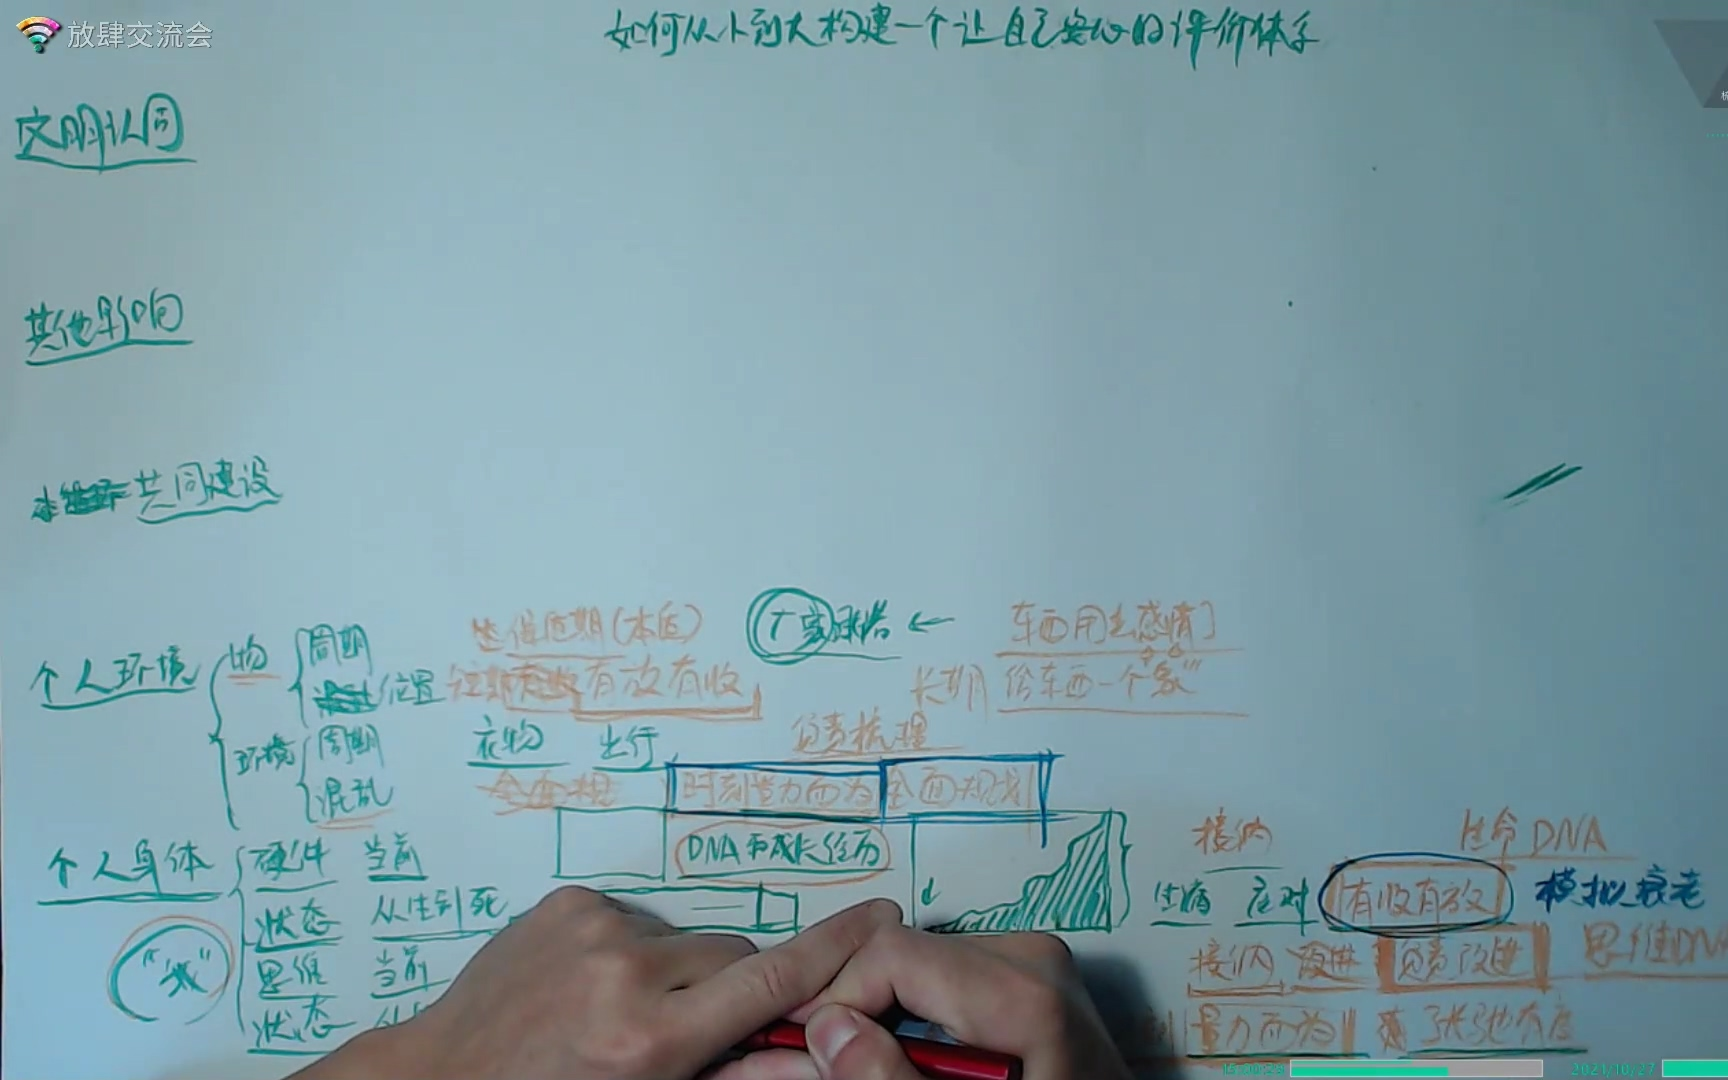 放肆交流会
如何从小到大构建一个让自己安心的评价体系
文明认同
其他影响
共同建设
个人环境 物 周期 近期(本位) 东西用出感情
位置 有放有收 长期 给东西一个"家"
环境 周期 衣物 出行 负责梳理
混乱 时刻量力而为 全面规划
个人身体 硬件 当前 DNA和成长经历 接纳 生命DNA
状态 从生到死 生病 应对 有收有放 模拟衰老
"我" 思维 当前 接纳 改进 负责改进 思维DN
状态 量力而为 张弛有度
2021/10/27